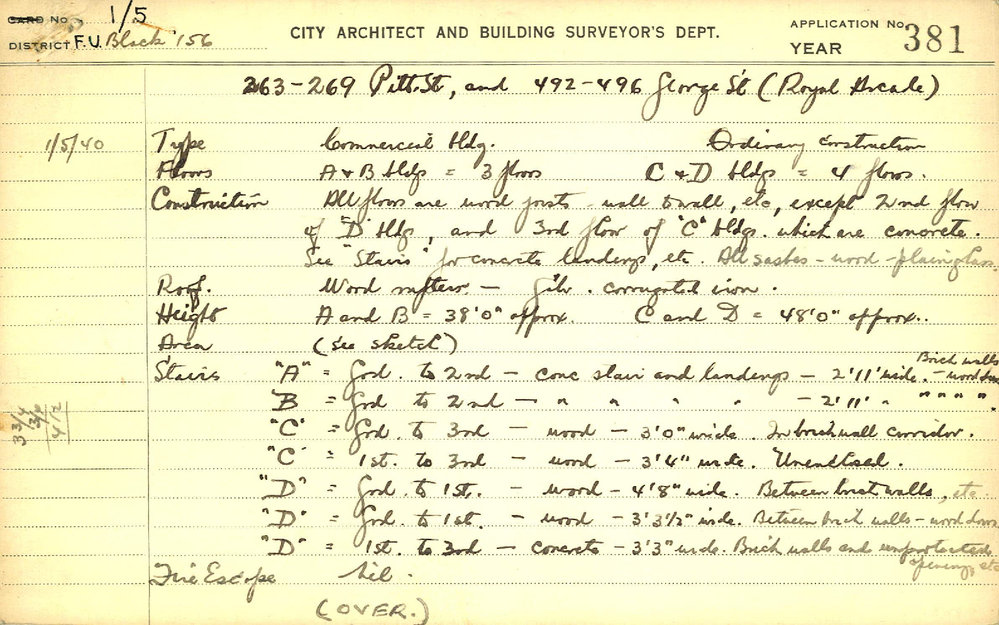 CARD No 1/5
DISTRICT F.U. Block 156
CITY ARCHITECT AND BUILDING SURVEYOR'S DEPT.
APPLICATION No. 381
YEAR
263-269 Pitt St, and 492-496 George St (Royal Arcade)
1/5/40 Type Commercial bldg. Ordinary construction
Floors A & B bldgs = 3 floors C & D bldgs = 4 floors.
Construction All floors are wood joists - wall to wall, etc, except 2nd floor
of "D" bldg, and 3rd floor of "C" bldg. which are concrete.
See "Stairs" for concrete landings, etc. All sashes - wood - plain glass.
Roof. Wood rafters - Galv. corrugated iron.
Height A and B = 38'0" approx. C and D = 48'0" approx..
Area (see sketch)
Stairs "A" = Grd. to 2nd - conc stair and landings - 2'11" wide. Brick walls - wood doors
"B" = Grd to 2nd - " " " " - 2'11" " " " " ".
"C" = Grd. to 3rd - wood - 3'0" wide. In brick wall corridor.
"C" = 1st. to 3rd - wood - 3'4" wide. Unenclosed.
"D" = Grd. to 1st. - wood - 4'8" wide. Between brick walls, etc
"D" = Grd. to 1st. - wood - 3'3 1/2" wide. Between brick walls - wood doors
"D" = 1st. to 3rd - concrete - 3'3" wide. Brick walls and unprotected
openings etc
Fire Escape Nil.
(OVER.)